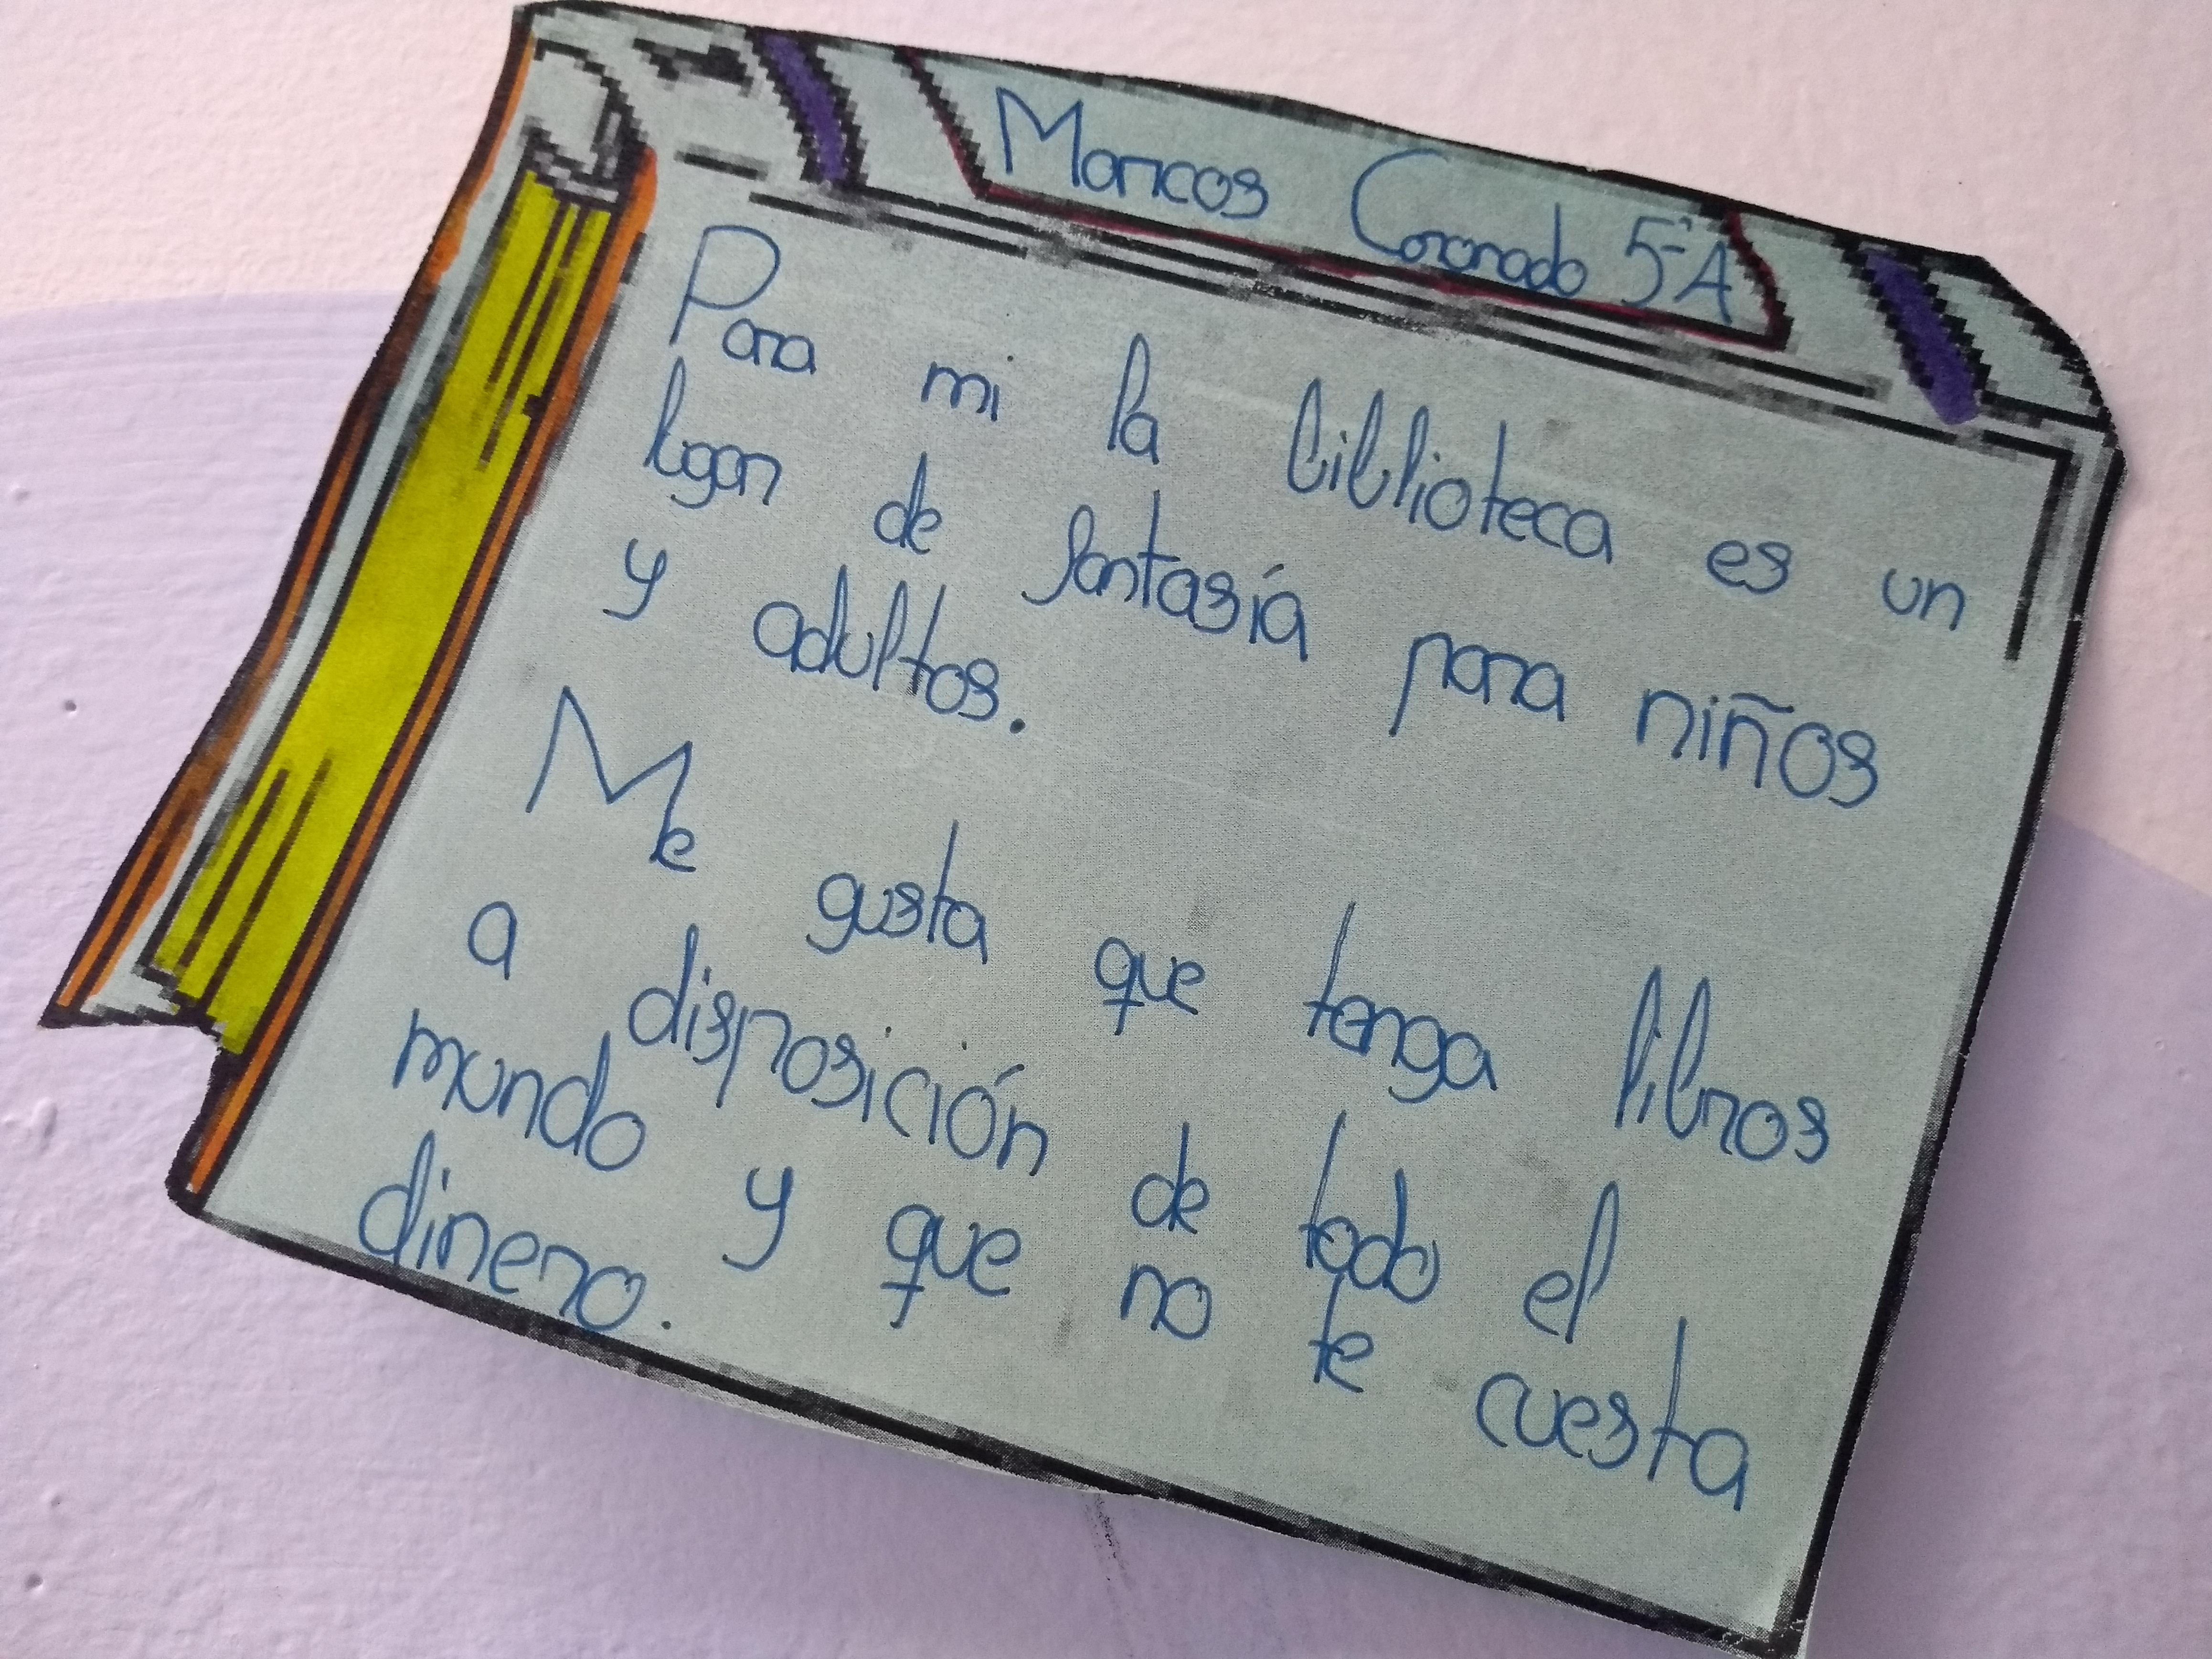 Marcos Coronado 5ºA
Para mi la biblioteca es un
lugar de fantasía para niños
y adultos.
Me gusta que tenga libros
a disposición de todo el
mundo y que no te cuesta
dinero.